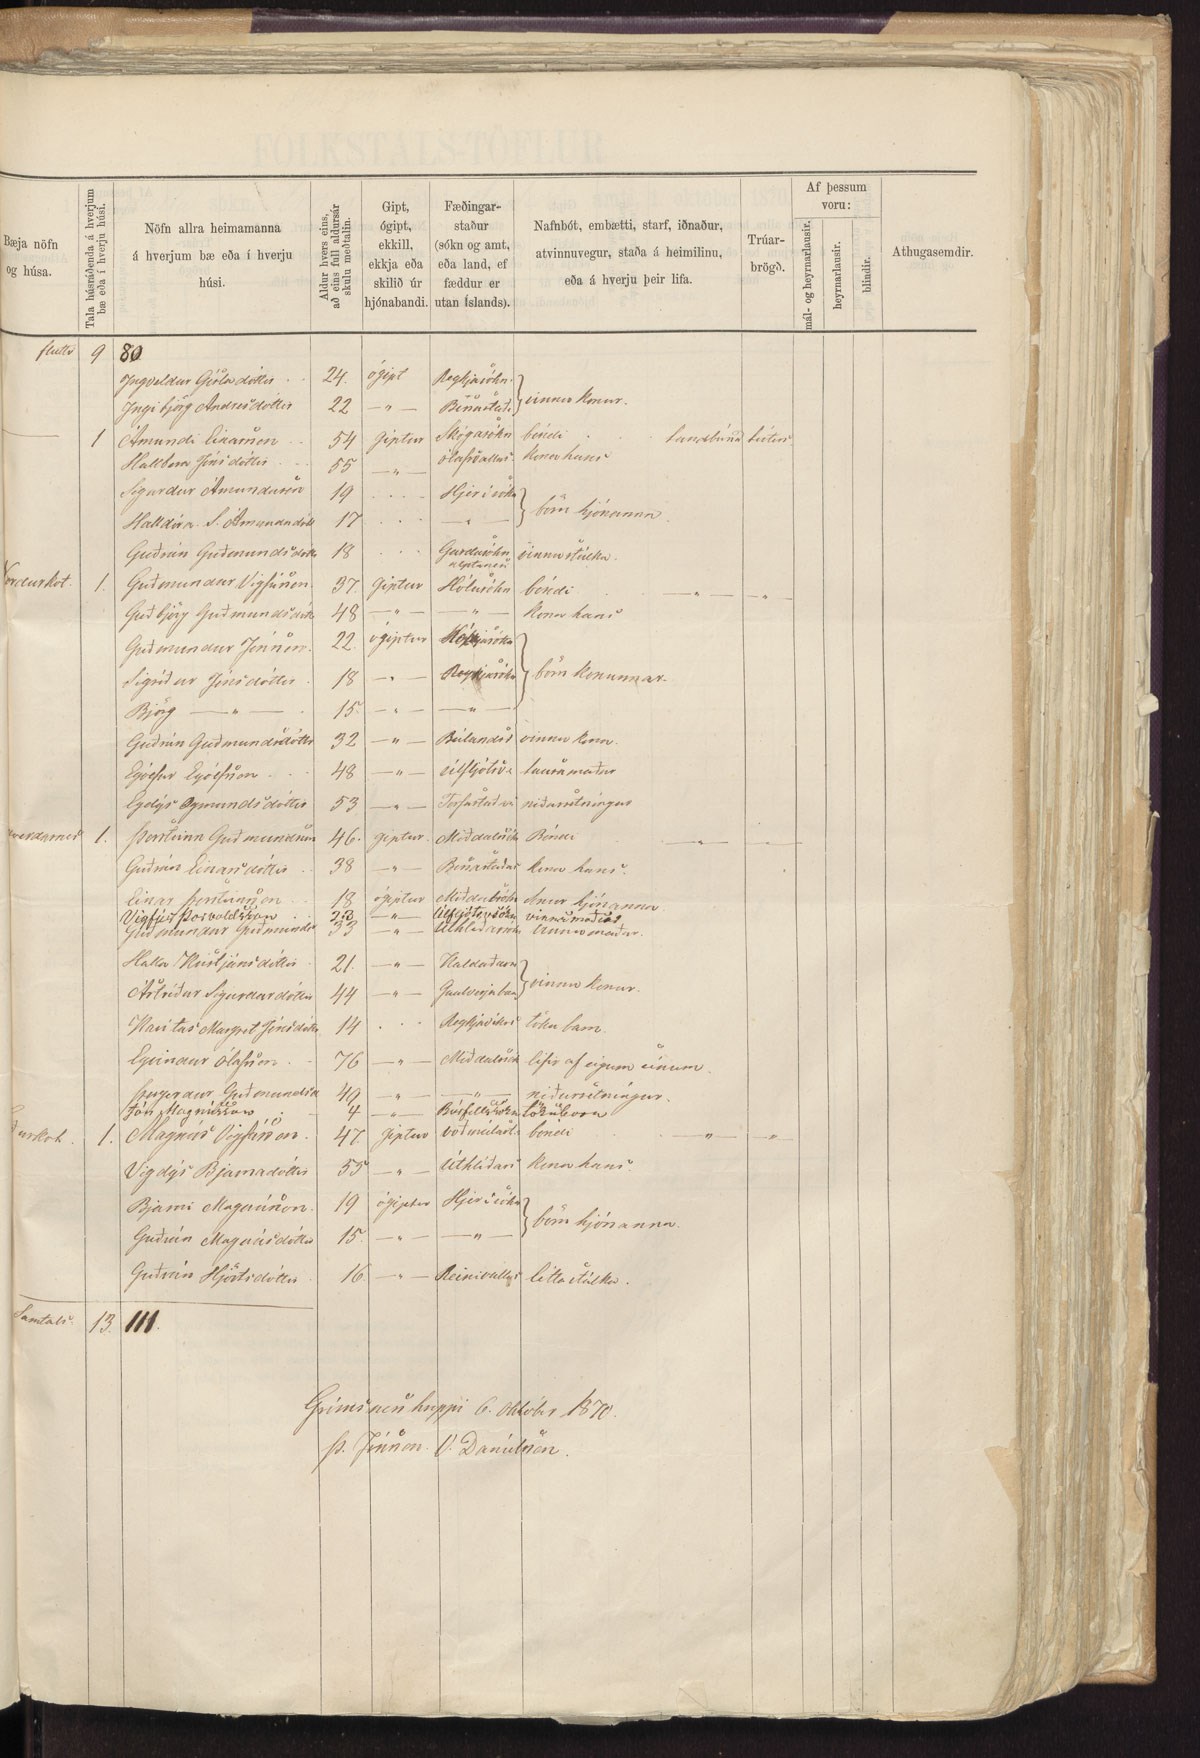 Bæja nöfn og húsa.
Tala húsráðenda á hverjum bæ eða í hverju húsi.
Nöfn allra heimamanna á hverjum bæ eða í hverju húsi.
Aldur hvers eins, að eins full aldursár skulu meðtalin.
Gipt, ógipt, ekkill, ekkja eða skilið úr hjónabandi.
Fæðingar-staður (sókn og amt, eða land, ef fæddur er utan Íslands).
Nafnbót, embætti, starf, iðnaður, atvinnuvegur, staða á heimilinu, eða á hverju þeir lifa.
Trúar-brögð.
Af þessum voru:
mál- og heyrnarlausir.
heyrnarlausir.
blindir.
Athugasemdir.
flutt 9 80
Ingveldur Gísladóttir 24. ógipt Reykjasókn
Ingibjörg Andrésdóttir 22 —"— vinnukonur.
1 Ámundi Einarsson 54 giptur Skógasókn bóndi landbúnað lúters
Hallbera Jónsdóttir 55 —"— Ólafsvallas. kona hans
Sigurður Ámundason 19 börn hjónanna
Halldóra S. Ámundadótt 17 —"—
Guðrún Guðmundsdótt 18 Garðasókn vinnustúlka.
1. Guðmundur Vigfússon 37. giptur bóndi —"— —"—
Guðbjörg Guðmundsdótt 48 —"— —"— kona hans
Guðmundur Jónsson 22 ógiptur börn konunnar
Sigríður Jónsdóttir 18 —"— Reykjasókn
Björg —"— 15. —"— —"—
Guðrún Guðmundsdóttir 32 —"— vinnukona.
Eyólfur Eyólfsson 48 —"— lausamaður
Eydýs Ögmundsdóttir 53 —"— niðursetningur
1. Þorsteinn Guðmundsson 46. giptur. Miðdalssókn Bóndi —"—
Guðrún Einarsdóttir 38 —"— kona hans.
Einar Þorsteinsson 18 ógiptur Miðdalssókn sonur hjónanna
Vigfús Þorvaldsson 23 —"— Úlfljótsv.sókn vinnumaður
Guðmundur Guðmundss 33 —"— Úthlíðarsókn vinnumaður.
Halla Kristjánsdóttir 21. —"— vinnukonur.
Ástríður Sigurðardóttir 44 —"— Gaulverjabæ
Karitas Margrét Jónsdótt 14 Reykjavíkur tökubarn
Eyvindur Ólafsson 76 —"— Miðdalssók lifir af eigum sínum
Þorgerður Guðmundsd 49 —"— —"— niðursetningur.
Jón Magnússon 4 —"— Búrfellssókn tökubarn
1. Magnús Vigfússon 47 giptur bóndi —"— —"—
Vigdýs Bjarnadóttir 55 —"— Úthlíðars kona hans.
Bjarni Magnússon. 19 ógiptur börn hjónanna.
Guðrún Magnúsdóttir 15. —"— —"—
Guðrún Hjörtsdóttir 16 —"— Reinivallas léttastúlka.
Samtals. 13. 111.
Grímsneshreppi 6. Október 1870.
Þ. Jónsson. V. Daníelsson.